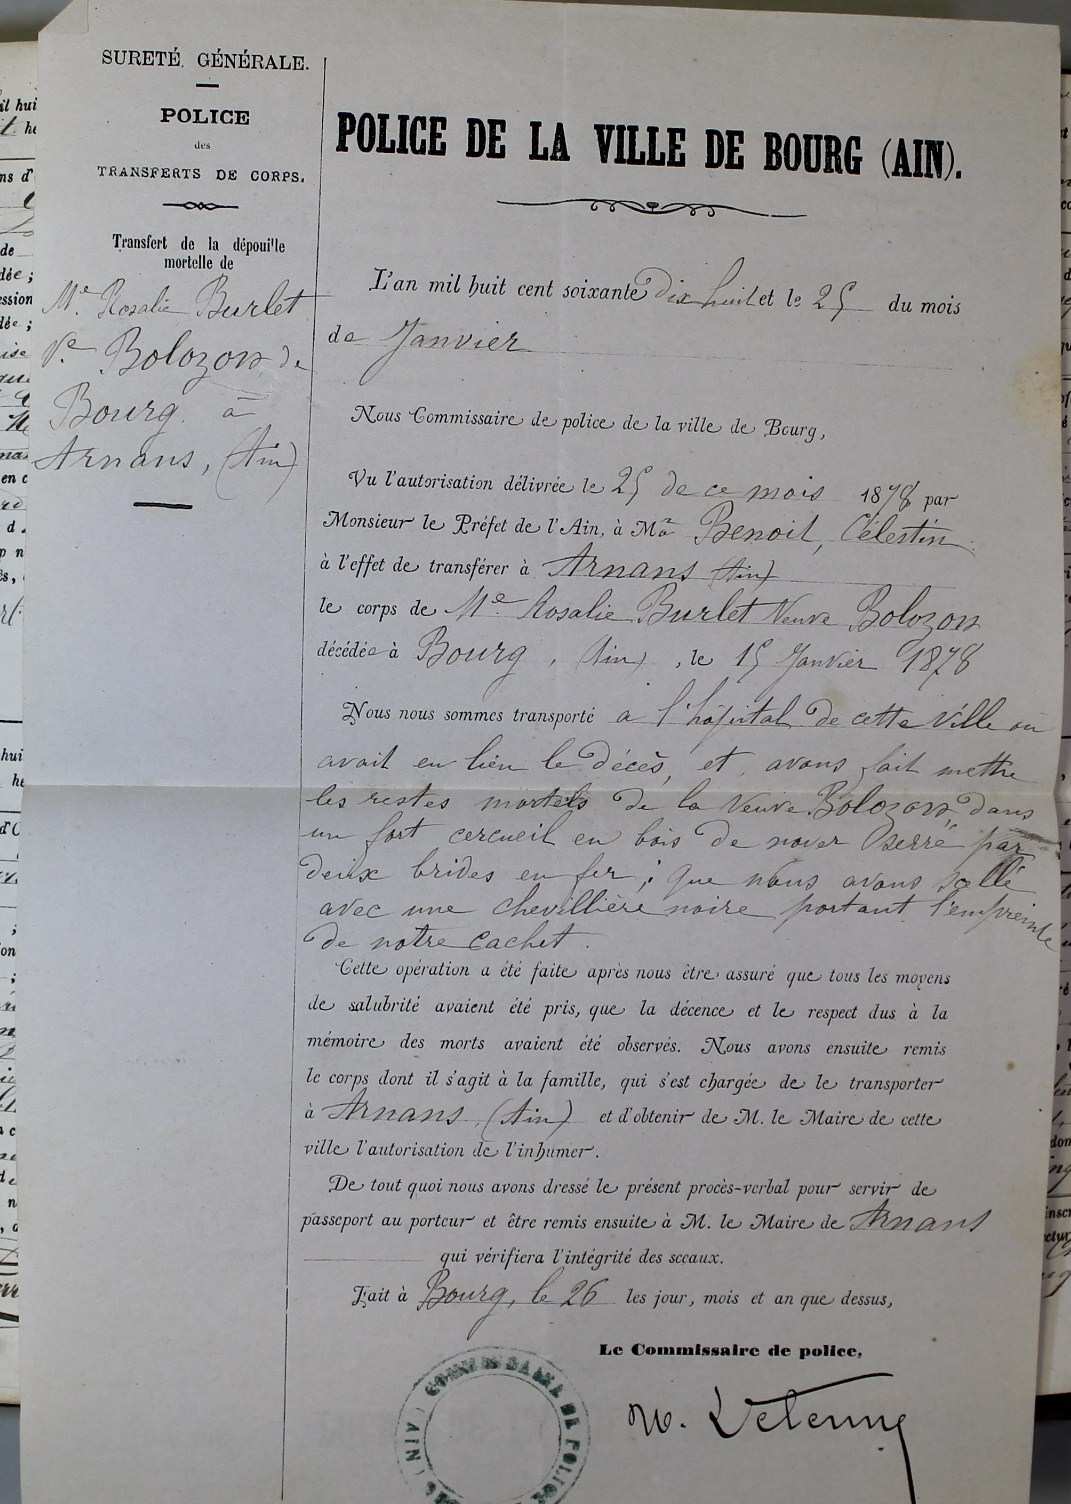 SURETÉ GÉNÉRALE.
POLICE
des
TRANSFERTS DE CORPS.
Transfert de la dépouille
mortelle de
Me. Rosalie Burlet
Ve. Bolozon, de
Bourg à
Arnans, (Ain)
POLICE DE LA VILLE DE BOURG (AIN).
L'an mil huit cent soixante dix huit et le 25 du mois
de Janvier
Nous Commissaire de police de la ville de Bourg,
Vu l'autorisation délivrée le 25 de ce mois 1878 par
Monsieur le Préfet de l'Ain, à Mr Benoit, Célestin
à l'effet de transférer à Arnans (Ain)
le corps de Me Rosalie Burlet Veuve Bolozon
décédée à Bourg, (Ain), le 25 Janvier 1878
Nous nous sommes transporté a l'hôpital de cette Ville ou
avait eu lieu le décès, et avons fait mettre
les restes mortels de la Veuve Bolozon, dans
un fort cercueil en bois de noyer serré par
deux brides en fer; que nous avons scellé
avec une chevillière noire portant l'empreinte
de notre cachet.
Cette opération a été faite après nous être assuré que tous les moyens
de salubrité avaient été pris, que la décence et le respect dus à la
mémoire des morts avaient été observés. Nous avons ensuite remis
le corps dont il s'agit à la famille, qui s'est chargée de le transporter
à Arnans, (Ain) et d'obtenir de M. le Maire de cette
ville l'autorisation de l'inhumer.
De tout quoi nous avons dressé le présent procès-verbal pour servir de
passeport au porteur et être remis ensuite à M. le Maire de Arnans
qui vérifiera l'intégrité des sceaux.
Fait à Bourg, le 26 les jour, mois et an que dessus,
Le Commissaire de police,
COMMISSAIRE DE POLICE
(AIN)